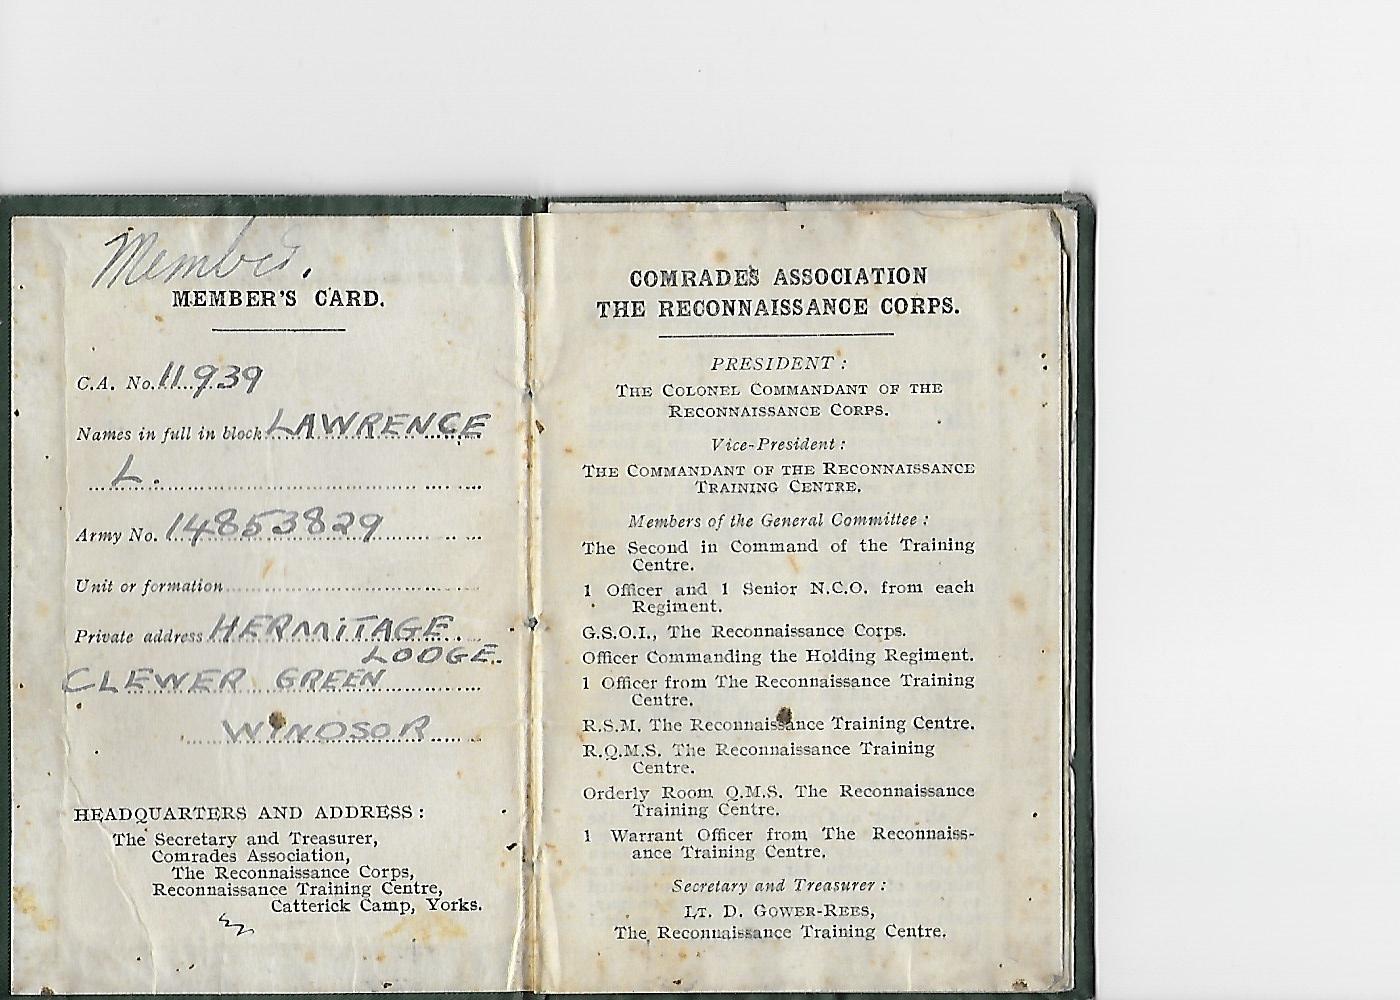 Member.
MEMBER'S CARD.
C.A. No. 11939
Names in full in block LAWRENCE
L.
Army No. 14853829
Unit or formation
Private address HERMITAGE
LODGE.
CLEWER GREEN
WINDSOR
HEADQUARTERS AND ADDRESS :
The Secretary and Treasurer,
Comrades Association,
The Reconnaissance Corps,
Reconnaissance Training Centre,
Catterick Camp, Yorks.
COMRADES ASSOCIATION
THE RECONNAISSANCE CORPS.
PRESIDENT :
THE COLONEL COMMANDANT OF THE
RECONNAISSANCE CORPS.
Vice-President :
THE COMMANDANT OF THE RECONNAISSANCE
TRAINING CENTRE.
Members of the General Committee :
The Second in Command of the Training
Centre.
1 Officer and 1 Senior N.C.O. from each
Regiment.
G.S.O.I., The Reconnaissance Corps.
Officer Commanding the Holding Regiment.
1 Officer from The Reconnaissance Training
Centre.
R.S.M. The Reconnaissance Training Centre.
R.Q.M.S. The Reconnaissance Training
Centre.
Orderly Room Q.M.S. The Reconnaissance
Training Centre.
1 Warrant Officer from The Reconnaiss-
ance Training Centre.
Secretary and Treasurer :
LT. D. GOWER-REES,
The Reconnaissance Training Centre.